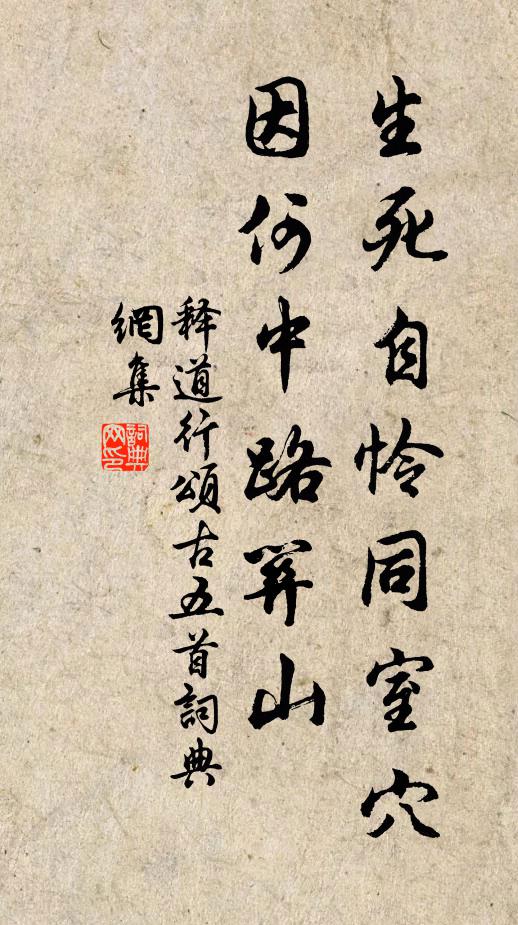 生死自怜同室穴
因何中路關山
释道行頌古五首詞典
網集
詞典
网印